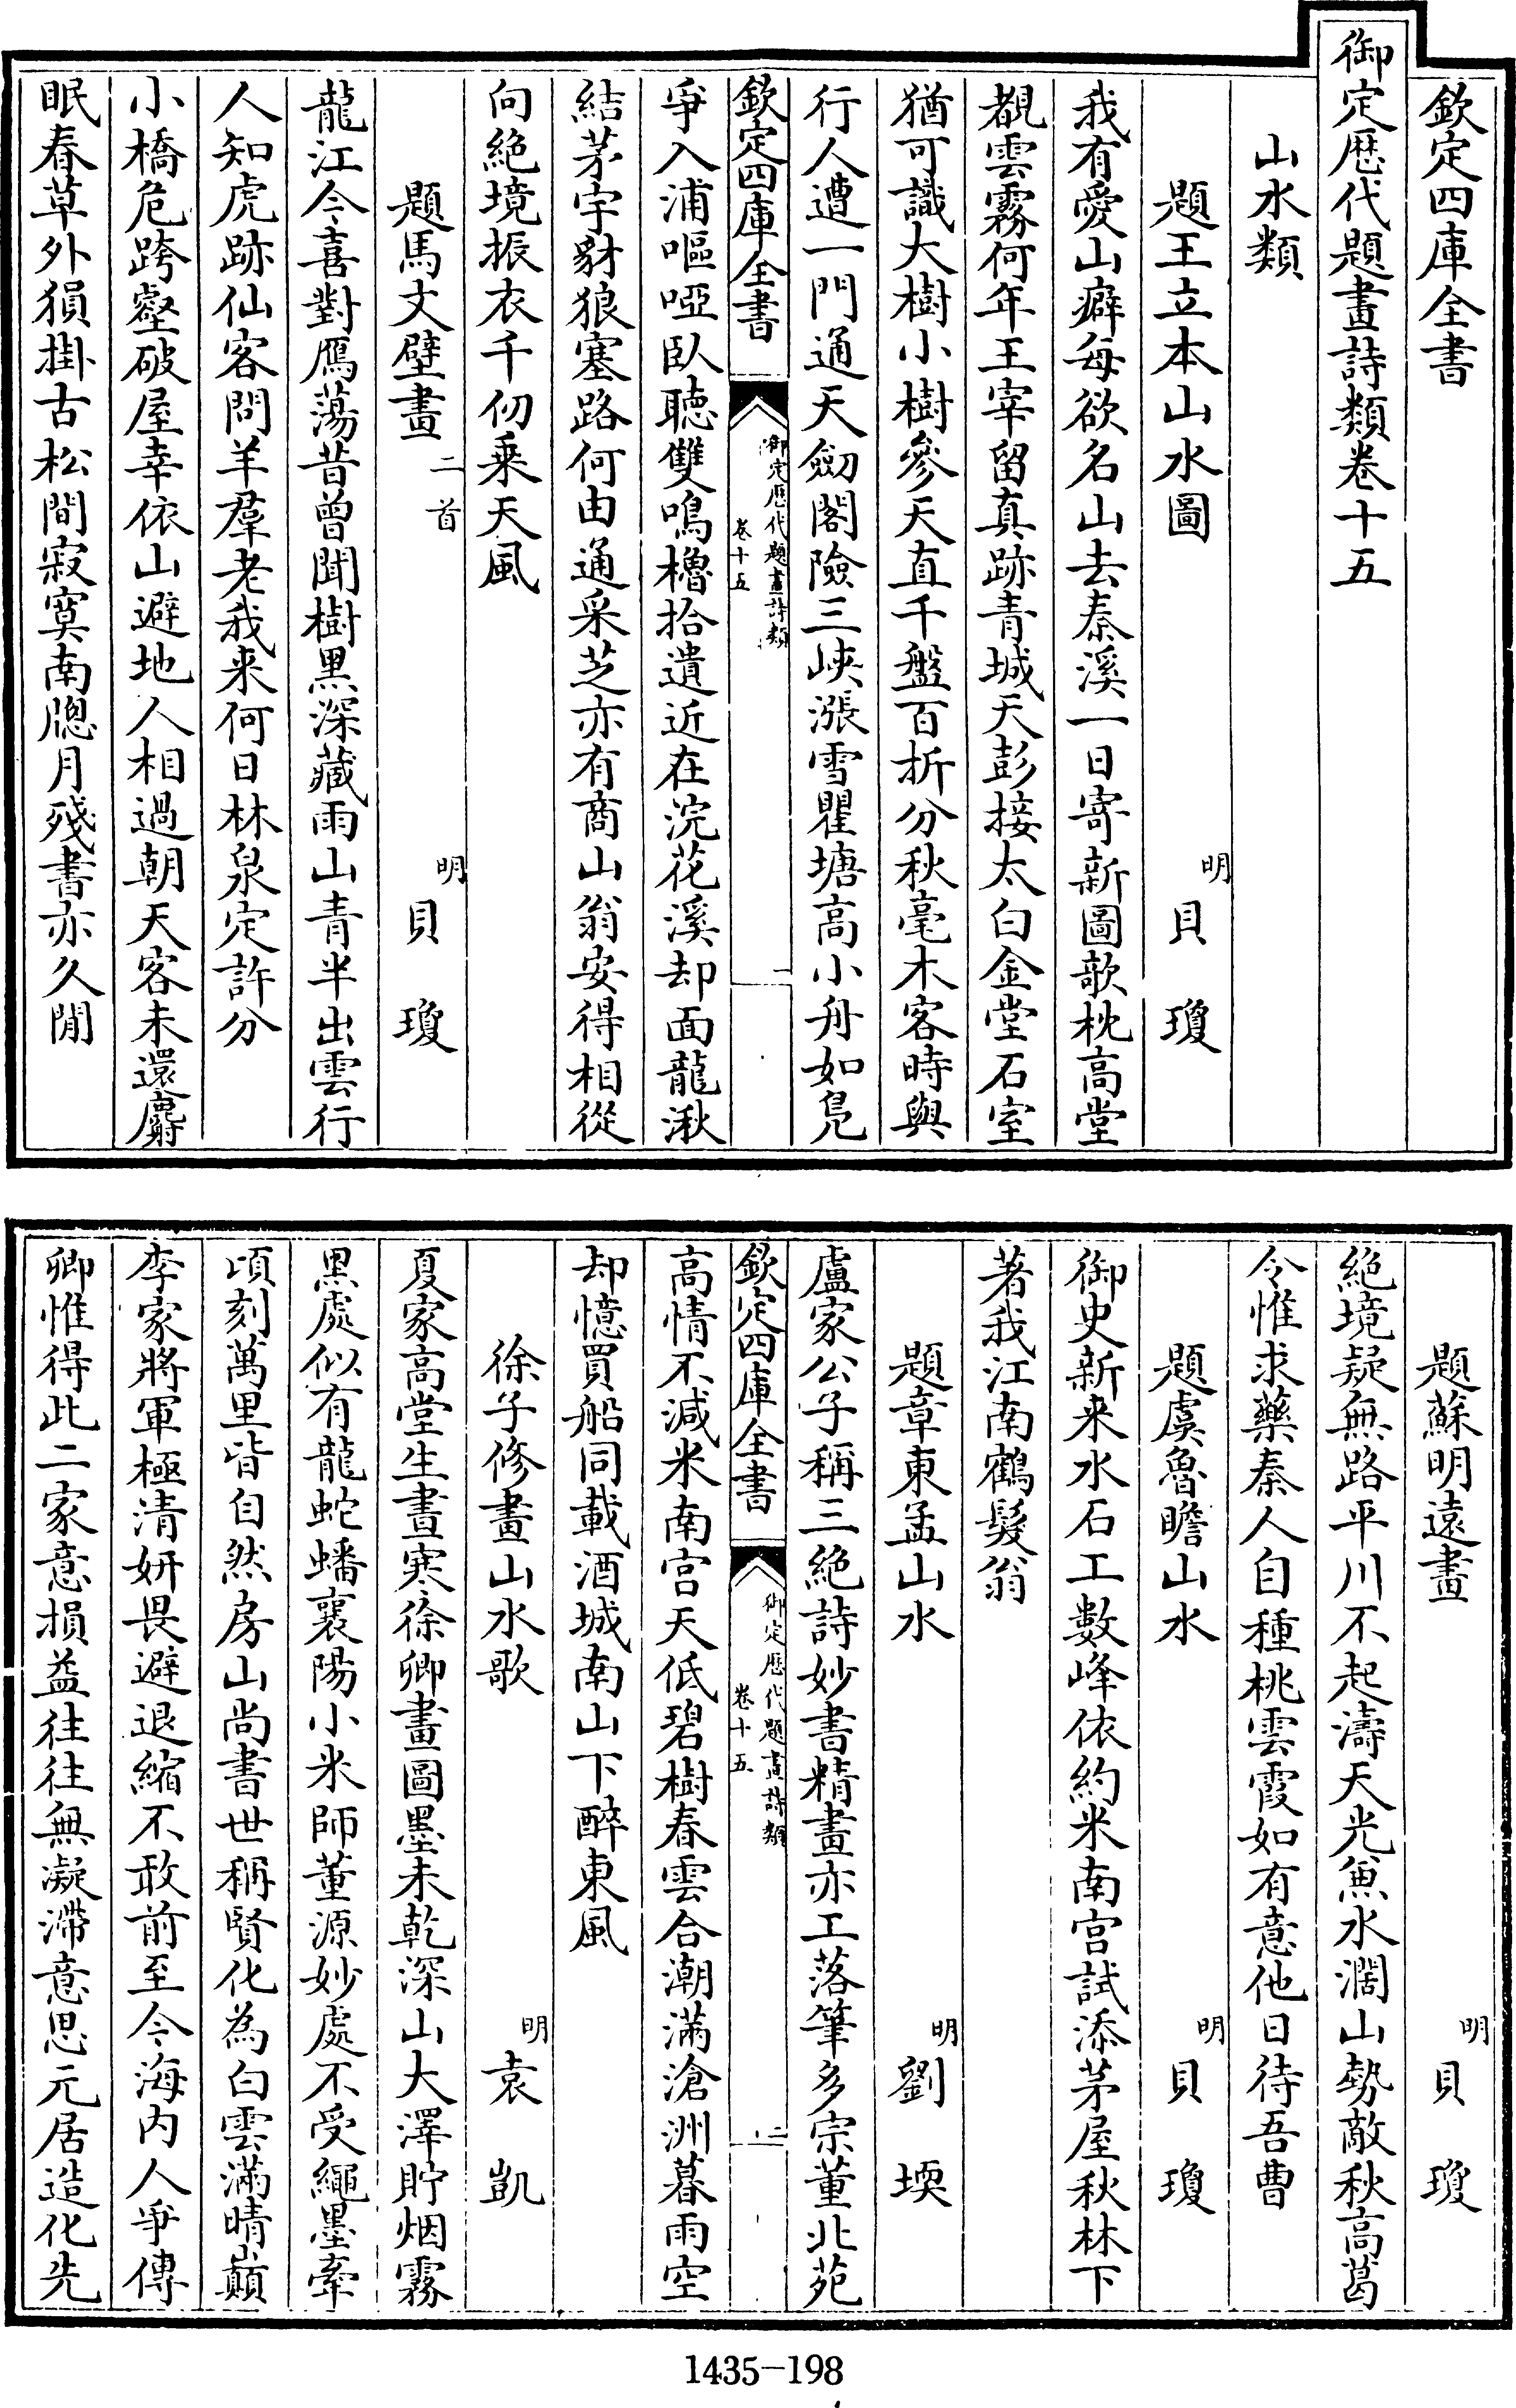 欽定四庫全書
御定歷代題畫詩類卷十五
山水類
題王立本山水圖　明貝瓊
我有愛山癖每欲名山去秦溪一日寄新圖欹枕高堂
覩雲霧何年王宰留真跡青城天彭接太白金堂石室
猶可識大樹小樹參天直千盤百折分秋毫木客時與
行人遭一門通天劒閣險三峽漲雪瞿塘高小舟如鳧
欽定四庫全書
御定歷代題畫詩類
卷十五
一
爭入浦嘔啞臥聽雙鳴櫓拾遺近在浣花溪却面龍湫
結茅宇豺狼塞路何由通采芝亦有商山翁安得相從
向絶境振衣千仞乗天風
題馬文璧畫二首　明貝瓊
龍江今喜對鴈蕩昔曾聞樹黒深藏雨山青半出雲行
人知虎跡仙客問羊羣老我来何日林泉定許分
小橋危跨壑破屋幸依山避地人相過朝天客未還麝
眠春草外猿掛古松間寂寞南牕月殘書亦久閒
題蘇明遠畫　明貝瓊
絶境疑無路平川不起濤天光魚水濶山勢敵秋高葛
令惟求藥秦人自種桃雲霞如有意他日待吾曹
題虞魯瞻山水　明貝瓊
御史新来水石工數峰依約米南宫試添茅屋秋林下
著我江南鶴髮翁
題章東孟山水　明劉㙇
盧家公子稱三絶詩妙書精畫亦工落筆多宗董北苑
欽定四庫全書
御定歷代題畫詩類
卷十五
二
高情不減米南宫天低碧樹春雲合潮滿滄洲暮雨空
却憶買船同載酒城南山下醉東風
徐子修畫山水歌　明袁凱
夏家高堂生晝寒徐卿畫圖墨未乾深山大澤貯烟霧
黒處似有龍蛇蟠襄陽小米師董源妙處不受繩墨牽
頃刻萬里皆自然房山尚書世稱賢化為白雲滿晴巔
李家將軍極清妍畏避退縮不敢前至今海内人爭傳
卿惟得此二家意損益往往無凝滯意思元居造化先
1435-198